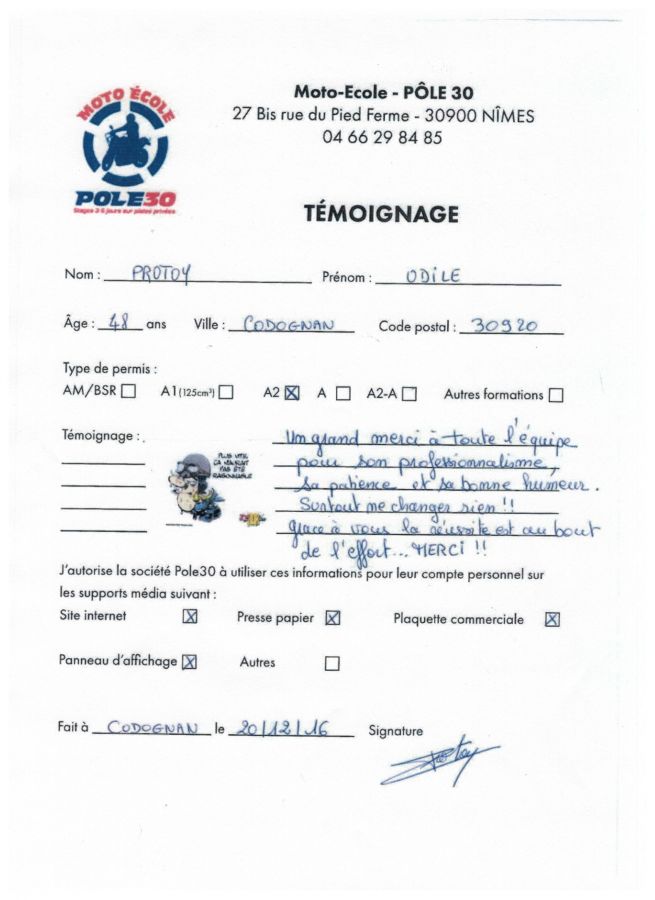 MOTO ÉCOLE
POLE30
Stages 3-5 jours sur pistes privées
Moto-Ecole - PÔLE 30
27 Bis rue du Pied Ferme - 30900 NÎMES
04 66 29 84 85
TÉMOIGNAGE
Nom : PROTOY Prénom : ODILE
Âge : 48 ans Ville : CODOGNAN Code postal : 30920
Type de permis :
AM/BSR A1 (125cm³) A2 A A2-A Autres formations
Témoignage :
PLUS VITE,
ÇA N'AURAIT
PAS ÉTÉ
RAISONNABLE
Un grand merci à toute l'équipe
pour son professionnalisme,
sa patience et sa bonne humeur.
Surtout ne changer rien !!
grace à vous la réussite est au bout
de l'effort... MERCI !!
J'autorise la société Pole30 à utiliser ces informations pour leur compte personnel sur
les supports média suivant :
Site internet Presse papier Plaquette commerciale
Panneau d'affichage Autres
Fait à CODOGNAN le 20/12/16 Signature
Protoy